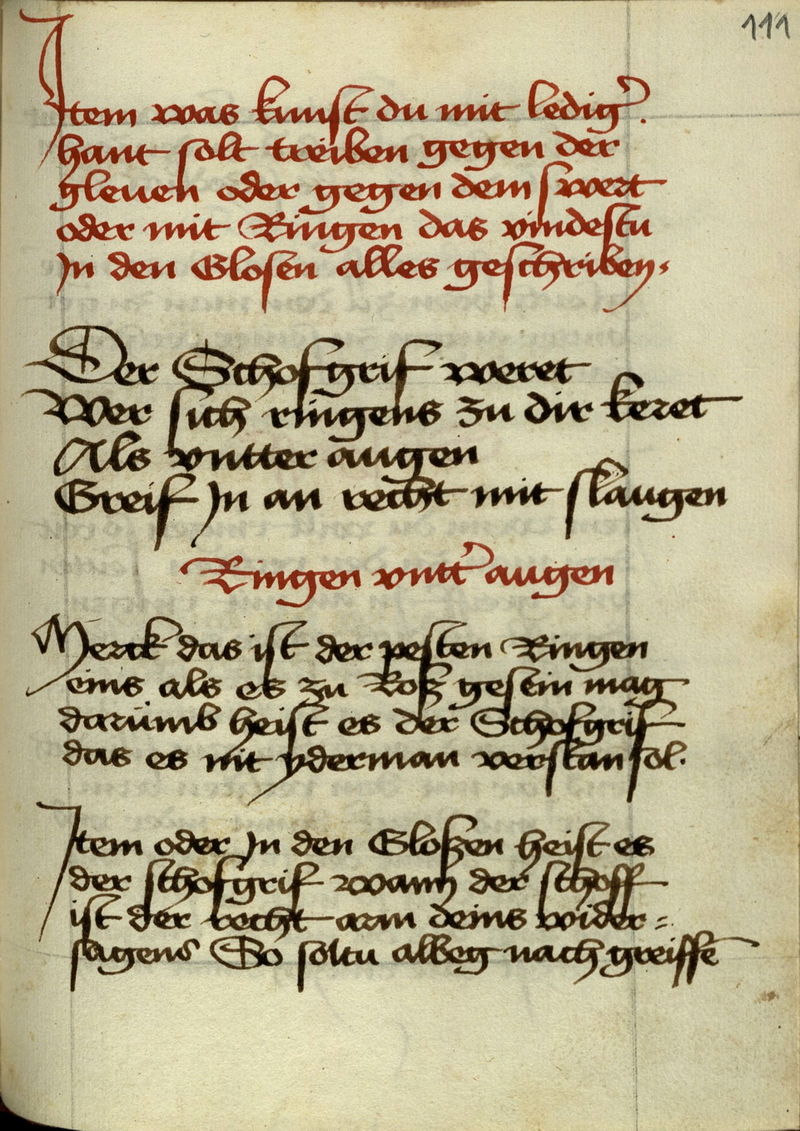 111
Item was kunst du mit ledig̉.
hant solt treiben gegen der
gleuen oder gegen dem swert
oder mit Ringen das vindestu
In den Glosen alles geschriben.
Der Schofgrif weret
Wer sich ringens zu dir keret
Als vntter augen
Greif In an recht mit slaugen
Ringen vntt̉ augen
Merck das ist der pesten Ringen
eins als es zu Roß gesein mag
darümb heist es der Schofgrif
das es nit yderman verstan sol.
Item oder In den Gloßen heist es
der schofgrif wann der schoff
ist der recht arm deins wider=
sagens So soltu albeg nach greiffē